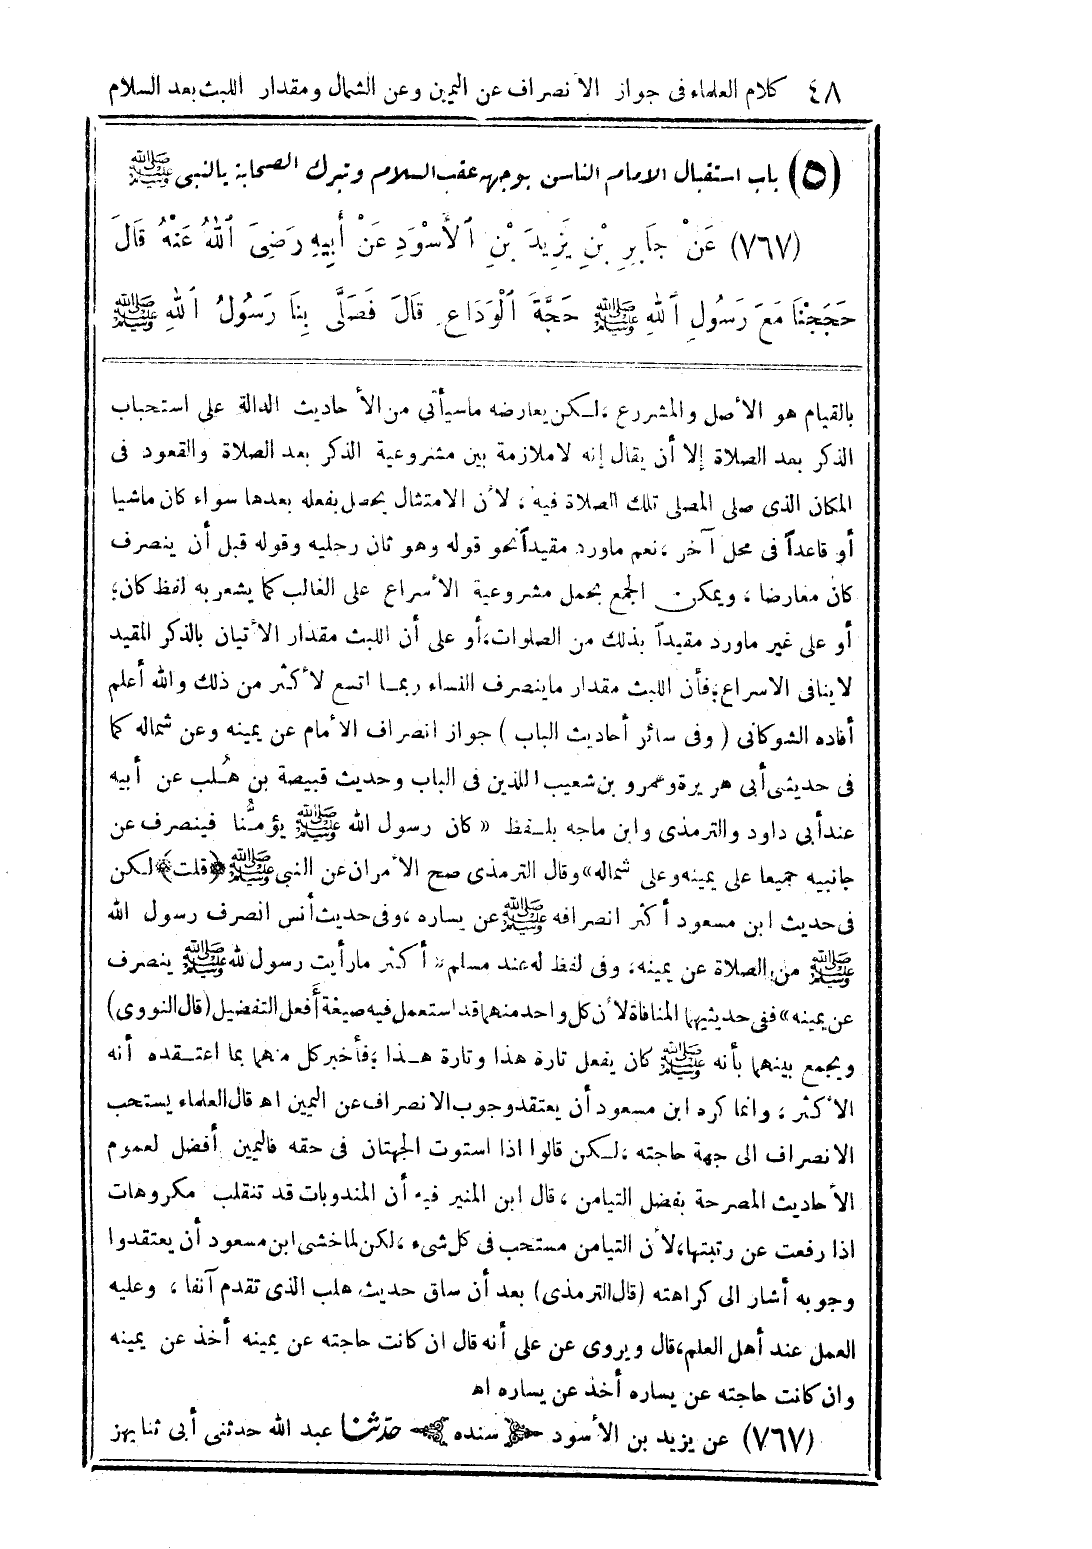 ٤٨ كلام العلماء فى جواز الأنصراف عن اليمين وعن الشمال ومقدار اللبث بعد السلام
(٥) باب استقبال الامام الناس بوجهه عقب السلام وتبرك الصحابة بالنبى ﷺ
(٧٦٧) عَنْ جَابِرِ بْنِ يَزِيدَ بْنِ الْأَسْوَدِ عَنْ أَبِيهِ رَضِىَ اللهُ عَنْهُ قَالَ
حَجَجْنَا مَعَ رَسُولِ اللهِ ﷺ حَجَّةَ الْوَدَاعِ قَالَ فَصَلَّى بِنَا رَسُولُ اللهِ ﷺ
بالقيام هو الأصل والمشروع ،لكن يعارضه ماسيأتى من الأحاديث الدالة على استحباب
الذكر بعد الصلاة إلا أن يقال إنه لاملازمة بين مشروعية الذكر بعد الصلاة والقعود فى
المكان الذى صلى المصلى تلك الصلاة فيه ، لأن الامتثال يحصل بفعله بعدها سواء كان ماشيا
أو قاعداً فى محل آخر ،نعم ماورد مقيداً نحو قوله وهو ثان رجليه وقوله قبل أن ينصرف
كان معارضا ، ويمكن الجمع بحمل مشروعية الأسراع على الغالب كما يشعر به لفظ كان؛
أو على غير ماورد مقيداً بذلك من الصلوات،أو على أن اللبث مقدار الأتيان بالذكر المقيد
لاينافى الاسراع؛فأن اللبث مقدار ماينصرف النساء ربما اتسع لأكثر من ذلك والله أعلم
أفاده الشوكانى ( وفى سائر أحاديث الباب ) جواز انصراف الأمام عن يمينه وعن شماله كما
فى حديثى أبى هريرة وعمرو بن شعيب اللذين فى الباب وحديث قبيصة بن هُلب عن أبيه
عند أبى داود والترمذى وابن ماجه بلفظ « كان رسول الله ﷺ يؤمُّنا فينصرف عن
جانبيه جميعا على يمينه وعلى شماله» وقال الترمذى صح الأمران عن النبى ﷺ ﴿قلت﴾ لكن
فى حديث ابن مسعود أكثر انصرافه ﷺ عن يساره ،وفى حديث أنس انصرف رسول الله
ﷺ من الصلاة عن يمينه، وفى لفظ له عند مسلم « أكثر مارأيت رسول لله ﷺ ينصرف
عن يمينه» ففى حديثيهما المنافاة لأن كل واحد منهما قد استعمل فيه صيغة أَفعل التفضيل (قال النووى)
ويجمع بينهما بأنه ﷺ كان يفعل تارة هذا وتارة هذا ؛فأخبر كل منهما بما اعتقده أنه
الأكثر ، وانما كره ابن مسعود أن يعتقد وجوب الانصراف عن اليمين اه قال العلماء يستحب
الانصراف الى جهة حاجته ،لكن قالوا اذا استوت الجهتان فى حقه فاليمين أفضل لعموم
الأحاديث المصرحة بفضل التيامن ،قال ابن المنير فيه أن المندوبات قد تنقلب مكروهات
اذا رفعت عن رتبتها،لأن التيامن مستحب فى كل شىء ،لكن لما خشى ابن مسعود أن يعتقدوا
وجوبه أشار الى كراهته (قال الترمذى) بعد أن ساق حديث هلب الذى تقدم آنفا ، وعليه
العمل عند أهل العلم،قال ويروى عن على أنه قال ان كانت حاجته عن يمينه أخذ عن يمينه
وان كانت حاجته عن يساره أخذ عن يساره اه
(٧٦٧) عن يزيد بن الأسود ﴿سنده﴾ حدّثنا عبد الله حدثنى أبى ثنا بهز